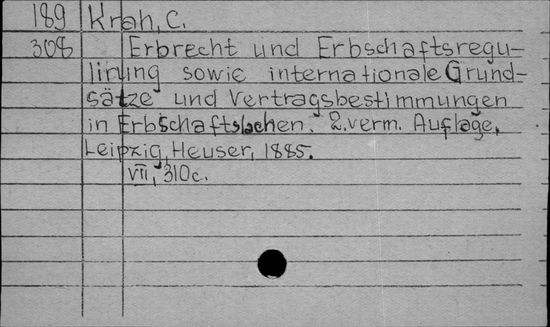 189 Krah, C.
308 Erbrecht und Erbschaftsregu-
lirung sowie internationale Grund-
sätze und Vertragsbestimmungen
in Erbschaftslachen. 2. verm. Auflage.
Leipzig, Heuser, 1885.
VII, 310c.